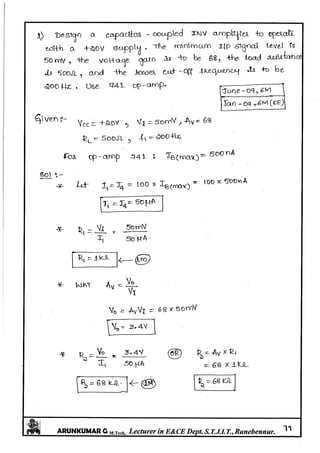 1) Design a capacitor - coupled INV amplifier to operate
with a +20V supply. The minimum I/p signal level is
50mV, the voltage gain is to be 68, the load resistance
is 500Ω, and the lower cut-off frequency is to be
200Hz. Use 741 op-amp.
June-09, 6M
Jan-09, 6M(EE)
Given:- VCC = +20V, VI = 50mV, AV = 68
RL = 500Ω, f1 = 200Hz
For op-amp 741 : IB(max) = 500nA
Sol:-
* Let I1 = I4 = 100 × IB(max) = 100 × 500nA
I1 = I4 = 50μA.
* R1 = Vi/I1 = 50mV/50μA.
R1 = 1kΩ ← 1M
* WKT AV = VO/VI
VO = AV VI = 68 × 50mV
VO = 3.4V
* R2 = VO/I1 = 3.4V/50μA OR R2 = AV × R1
= 68 × 1kΩ
R2 = 68kΩ. ← 1M R2 = 68kΩ
ARUNKUMAR G M.Tech, Lecturer in E&CE Dept. S.T.J.I.T., Ranebennur. 77